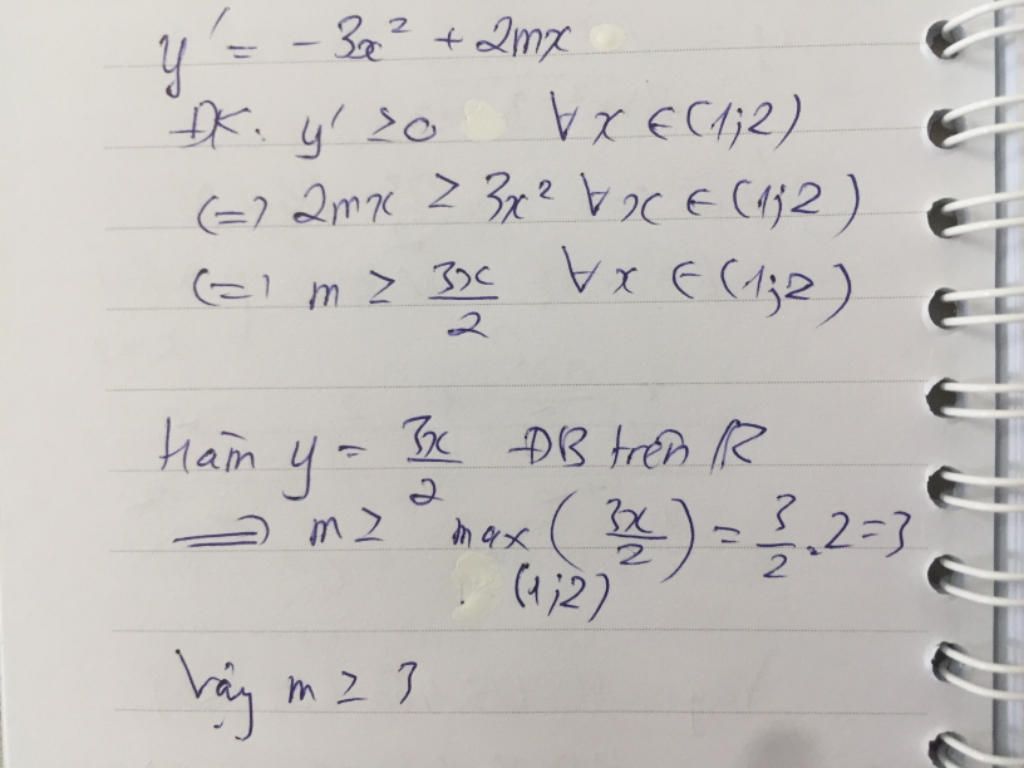 y' = -3x² + 2mx
ĐK: y' ≥ 0 ∀x ∈ (1;2)
(=) 2mx ≥ 3x² ∀x ∈ (1;2)
(=) m ≥ 3x/2 ∀x ∈ (1;2)
Hàm y = 3x/2 ĐB trên R
=> m ≥ max (3x/2) = 3/2 . 2 = 3
(1;2)
Vậy m ≥ 3